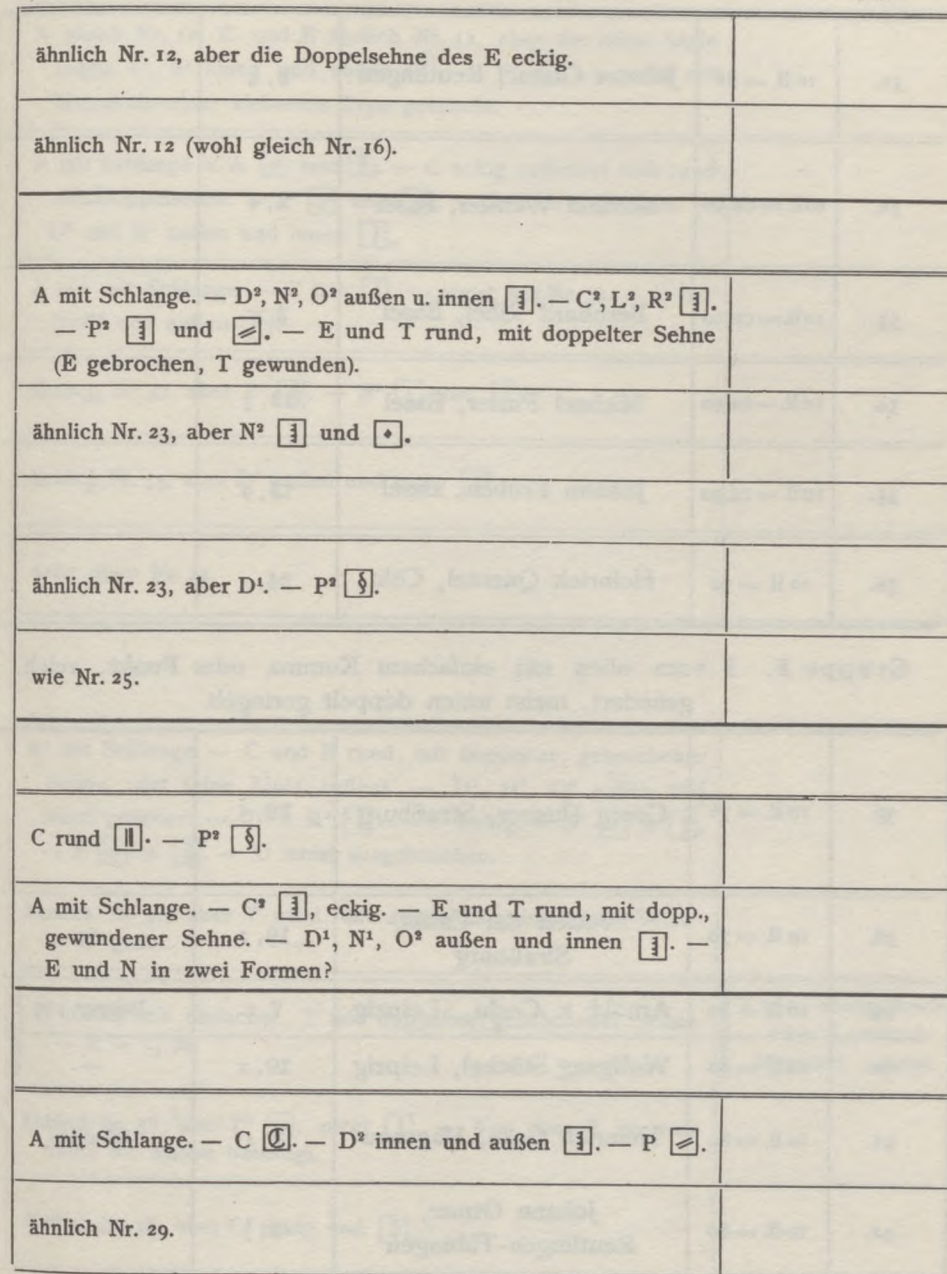 ähnlich Nr. 12, aber die Doppelsehne des E eckig.
ähnlich Nr. 12 (wohl gleich Nr. 16).
A mit Schlange. — D², N², O² außen u. innen . — C², L², R² .
— P² und . — E und T rund, mit doppelter Sehne
(E gebrochen, T gewunden).
ähnlich Nr. 23, aber N² und .
ähnlich Nr. 23, aber D¹. — P² §.
wie Nr. 25.
C rund ‖. — P² §.
A mit Schlange. — C² , eckig. — E und T rund, mit dopp.,
gewundener Sehne. — D¹, N¹, O² außen und innen . —
E und N in zwei Formen?
A mit Schlange. — C ℭ. — D² innen und außen . — P .
ähnlich Nr. 29.